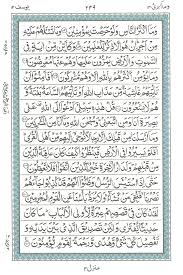 وَمَآ اَكْثَرُ النَّاسِ وَلَوْ حَرَصْتَ بِمُؤْمِنِيْنَ وَمَا تَسْـَٔلُهُمْ عَلَيْهِ
مِنْ اَجْرٍ اِنْ هُوَ اِلَّا ذِكْرٌ لِّلْعٰلَمِيْنَ وَكَاَيِّنْ مِّنْ اٰيَةٍ فِي
السَّمٰوٰتِ وَالْاَرْضِ يَمُرُّوْنَ عَلَيْهَا وَهُمْ عَنْهَا مُعْرِضُوْنَ
وَمَا يُؤْمِنُ اَكْثَرُهُمْ بِاللّٰهِ اِلَّا وَهُمْ مُّشْرِكُوْنَ اَفَاَمِنُوْٓا اَنْ
تَاْتِيَهُمْ غَاشِيَةٌ مِّنْ عَذَابِ اللّٰهِ اَوْ تَاْتِيَهُمُ السَّاعَةُ بَغْتَةً وَّ
هُمْ لَا يَشْعُرُوْنَ قُلْ هٰذِهٖ سَبِيْلِيْٓ اَدْعُوْٓا اِلَى اللّٰهِ عَلٰى بَصِيْرَةٍ
اَنَا وَمَنِ اتَّبَعَنِيْ وَسُبْحٰنَ اللّٰهِ وَمَآ اَنَا مِنَ الْمُشْرِكِيْنَ وَمَآ
اَرْسَلْنَا مِنْ قَبْلِكَ اِلَّا رِجَالًا نُّوْحِيْٓ اِلَيْهِمْ مِّنْ اَهْلِ الْقُرٰى
اَفَلَمْ يَسِيْرُوْا فِي الْاَرْضِ فَيَنْظُرُوْا كَيْفَ كَانَ عَاقِبَةُ الَّذِيْنَ
مِنْ قَبْلِهِمْ وَلَدَارُ الْاٰخِرَةِ خَيْرٌ لِّلَّذِيْنَ اتَّقَوْا اَفَلَا تَعْقِلُوْنَ
حَتّٰىٓ اِذَا اسْتَيْـَٔسَ الرُّسُلُ وَظَنُّوْٓا اَنَّهُمْ قَدْ كُذِبُوْا جَآءَهُمْ
نَصْرُنَا فَنُجِّيَ مَنْ نَّشَآءُ وَلَا يُرَدُّ بَاْسُنَا عَنِ الْقَوْمِ الْمُجْرِمِيْنَ
لَقَدْ كَانَ فِيْ قَصَصِهِمْ عِبْرَةٌ لِّاُولِي الْاَلْبَابِ مَا كَانَ
حَدِيْثًا يُّفْتَرٰى وَلٰكِنْ تَصْدِيْقَ الَّذِيْ بَيْنَ يَدَيْهِ وَ
تَفْصِيْلَ كُلِّ شَيْءٍ وَّهُدًى وَّرَحْمَةً لِّقَوْمٍ يُّؤْمِنُوْنَ